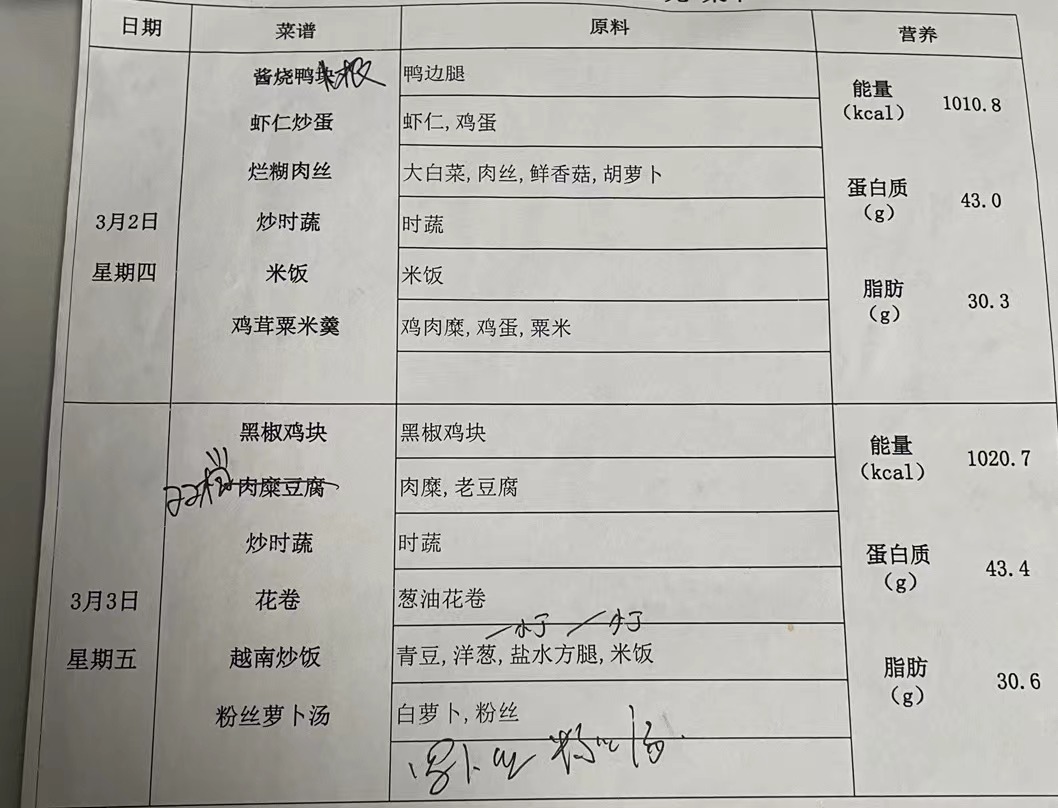 日期 菜谱 原料 营养
酱烧鸭块 鸭边腿
能量 (kcal) 1010.8
虾仁炒蛋 虾仁,鸡蛋
烂糊肉丝 大白菜,肉丝,鲜香菇,胡萝卜
蛋白质 (g) 43.0
3月2日 炒时蔬 时蔬
星期四 米饭 米饭
脂肪 (g) 30.3
鸡茸粟米羹 鸡肉糜,鸡蛋,粟米
黑椒鸡块 黑椒鸡块
能量 (kcal) 1020.7
肉糜豆腐 肉糜,老豆腐
炒时蔬 时蔬
蛋白质 (g) 43.4
3月3日 花卷 葱油花卷
小丁 小丁
星期五 越南炒饭 青豆,洋葱,盐水方腿,米饭
脂肪 (g) 30.6
粉丝萝卜汤 白萝卜,粉丝